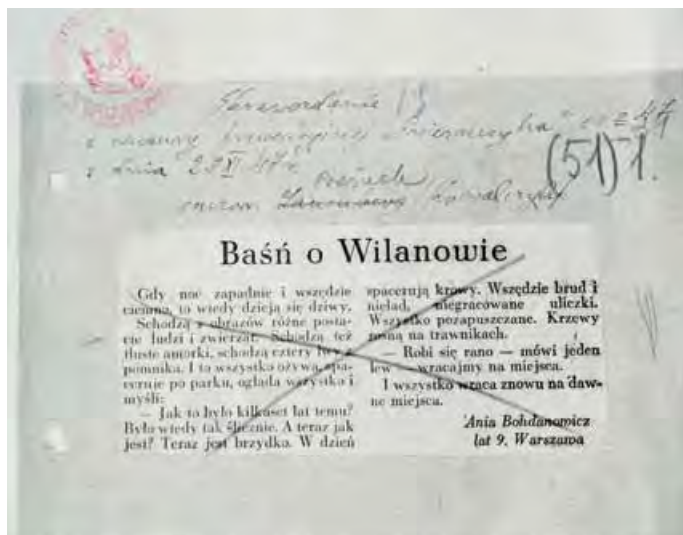 Sprawozdanie
z dnia 29 XI 47 r.
(51) 1.
Baśń o Wilanowie
Gdy noc zapadnie i wszędzie
ciemno, to wtedy dzieją się dziwy.
Schodzą z obrazów różne posta-
cie ludzi i zwierząt. Schodzą też
tłuste amorki, schodzą cztery lwy z
pomnika. I to wszystko ożywa, spa-
ceruje po parku, ogląda wszystko i
myśli:
— Jak to było kilkaset lat temu?
Było wtedy tak ślicznie. A teraz jak
jest? Teraz jest brzydko. W dzień
spacerują krowy. Wszędzie brud i
nieład, niegracowane uliczki.
Wszystko pozapuszczane. Krzewy
rosną na trawnikach.
— Robi się rano — mówi jeden
lew — wracajmy na miejsca.
I wszystko wraca znowu na daw-
ne miejsca.
Ania Bohdanowicz
lat 9, Warszawa